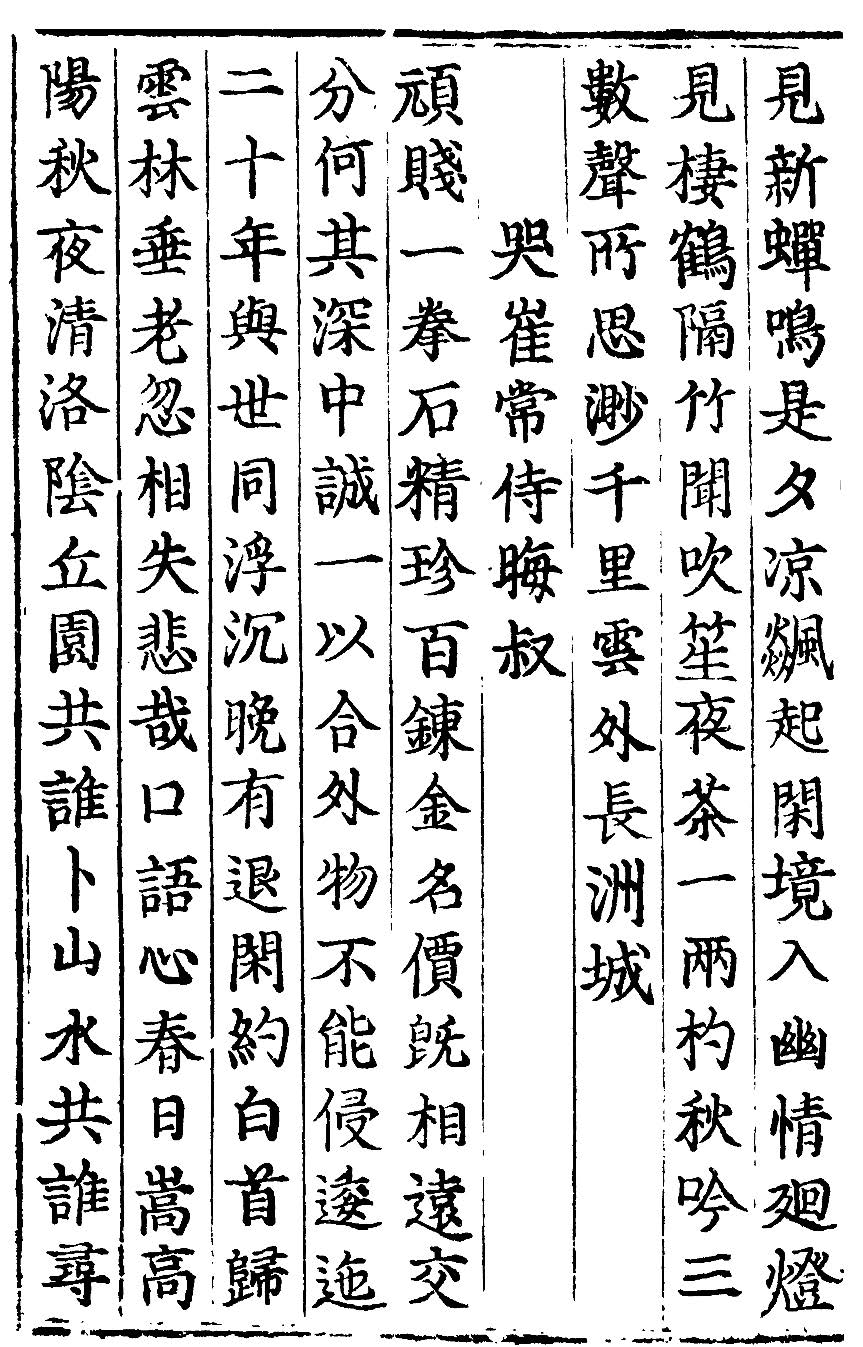 見新蟬鳴是夕凉飈起閑境入幽情廻燈
見棲鶴隔竹聞吹笙夜茶一兩杓秋吟三
數聲所思渺千里雲外長洲城
哭崔常侍晦叔
頑賤一拳石精珍百鍊金名價旣相遠交
分何其深中誠一以合外物不能侵逶迤
二十年與世同浮沉晚有退閑約白首歸
雲林垂老忽相失悲哉口語心春日嵩高
陽秋夜清洛陰丘園共誰卜山水共誰尋